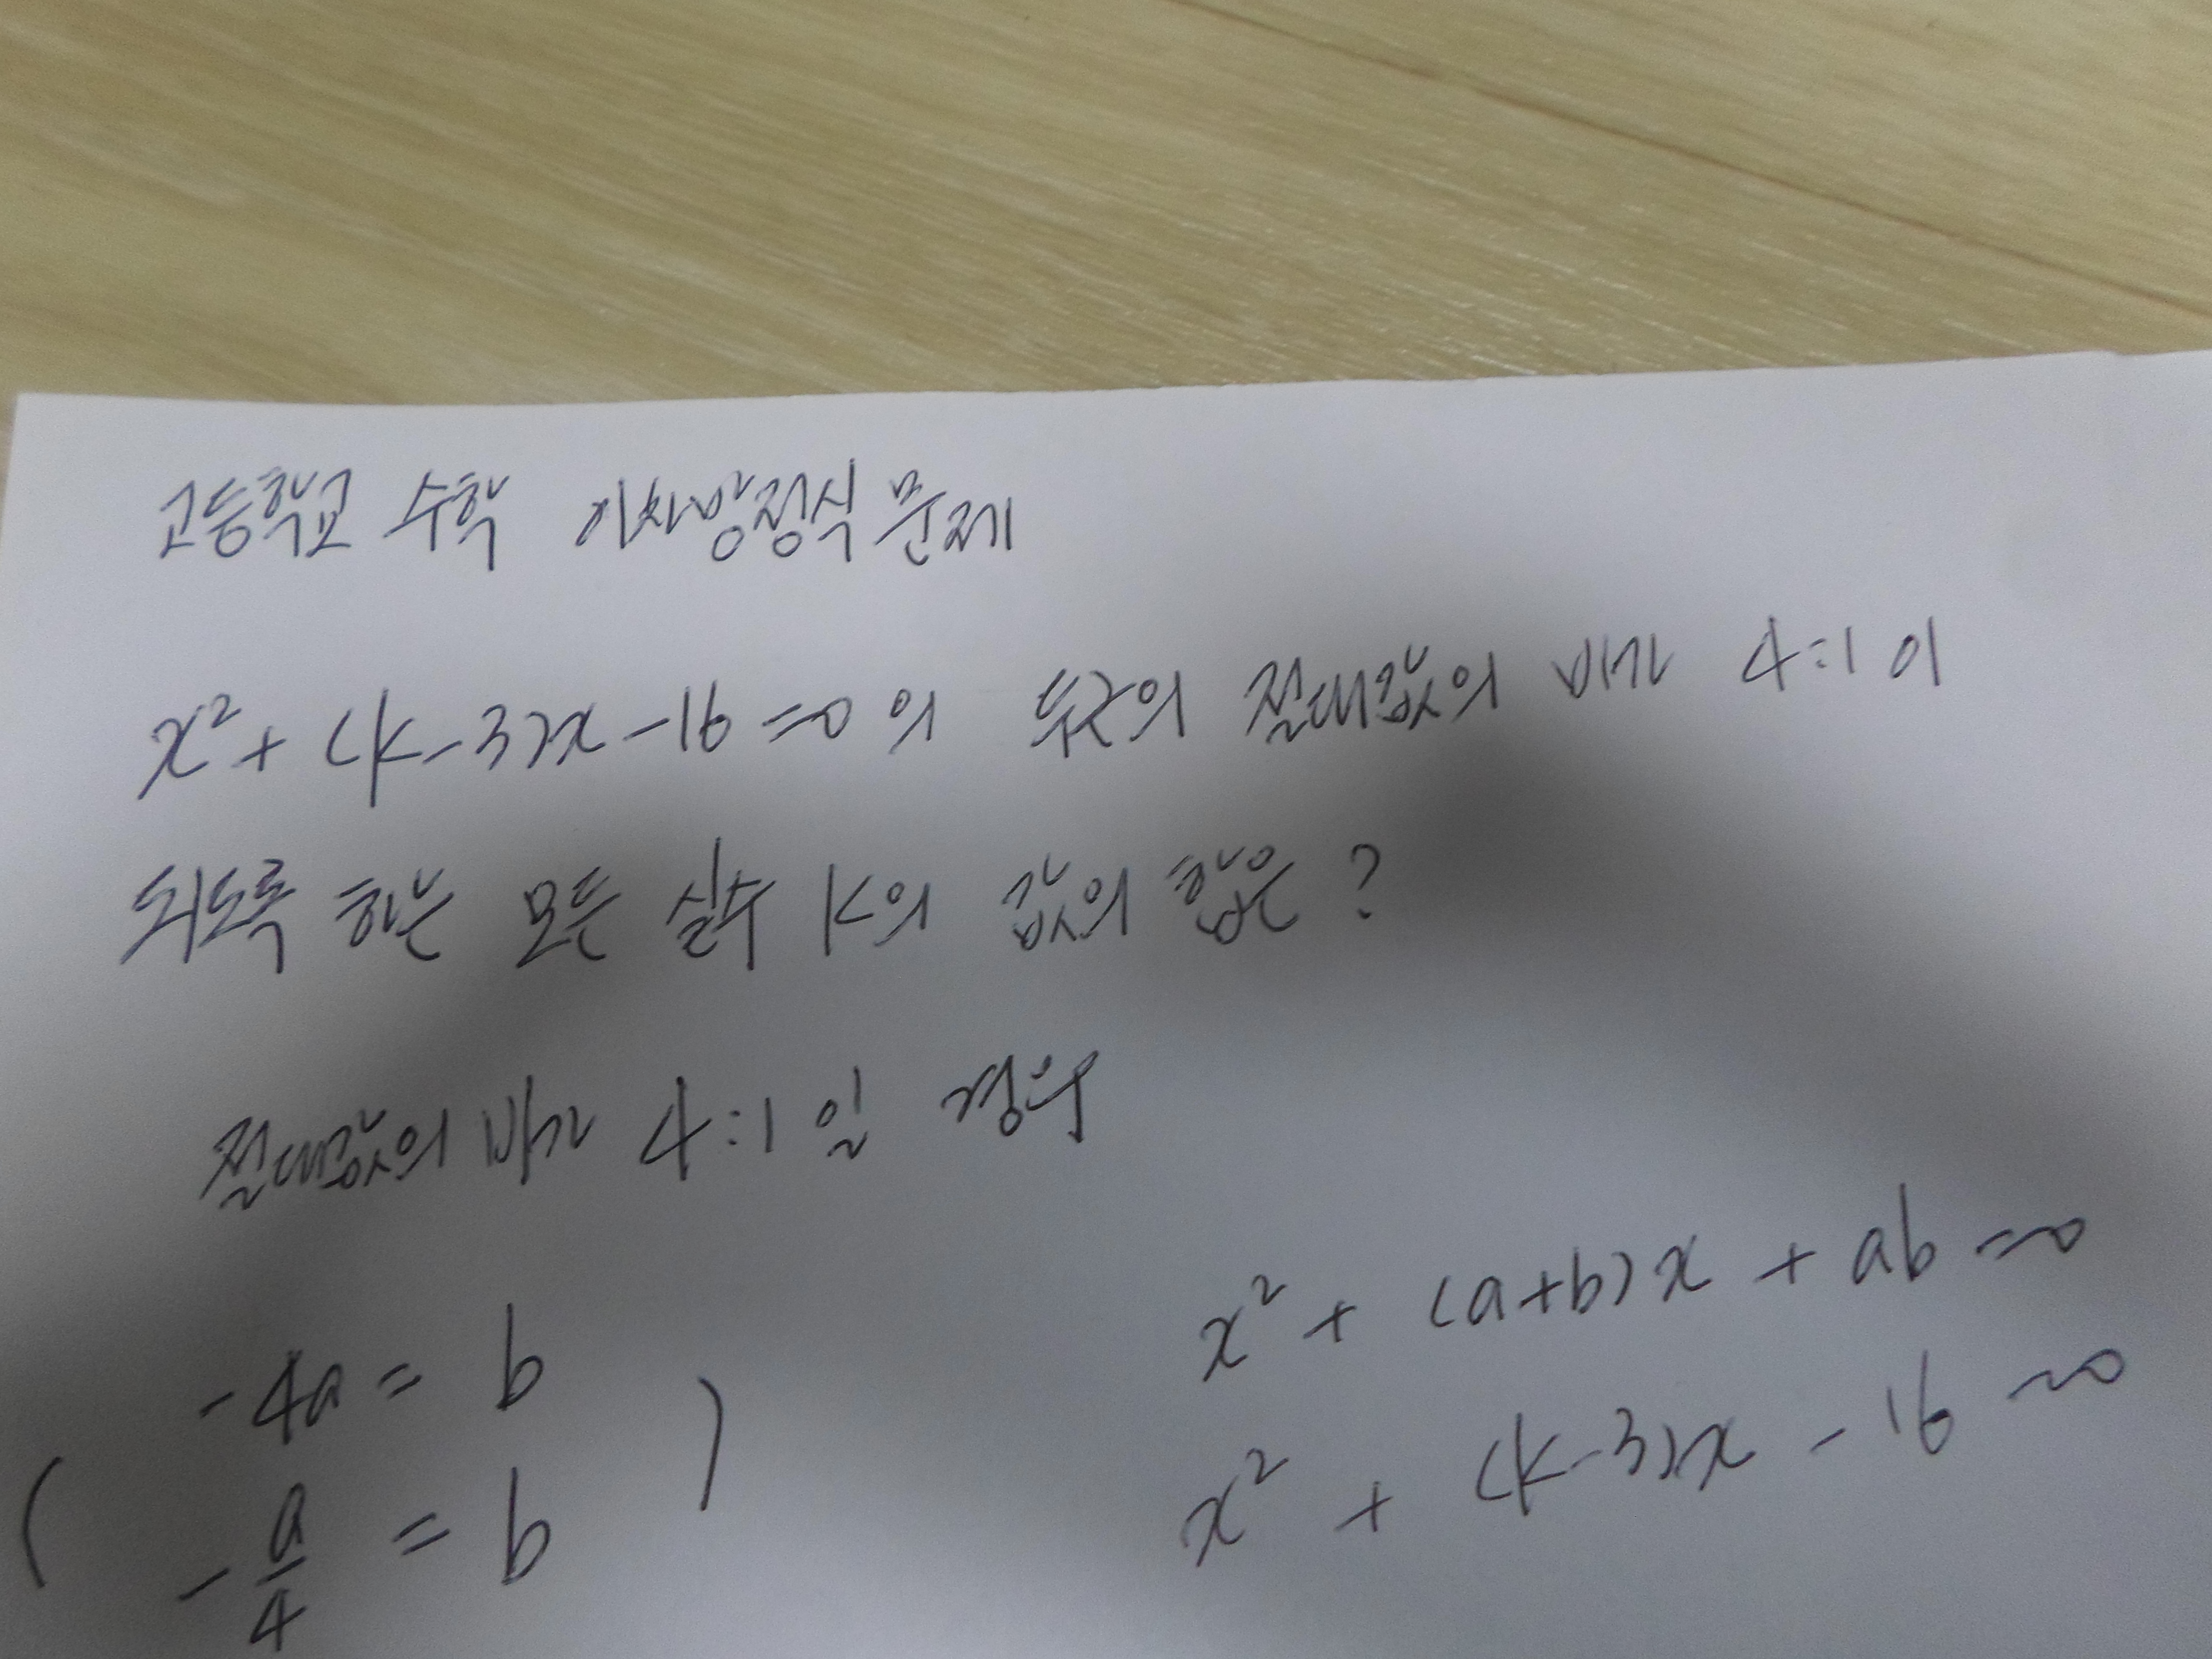 고등학교 수학 이차방정식 문제
x² + (k-3)x - 16 = 0 의 두근의 절대값의 비가 4:1 이
되도록 하는 모든 실수 k의 값의 합은?
절대값의 비가 4:1 일 경우
x² + (a+b)x + ab = 0
-4a = b
x² + (k-3)x - 16 = 0
( -a/4 = b )